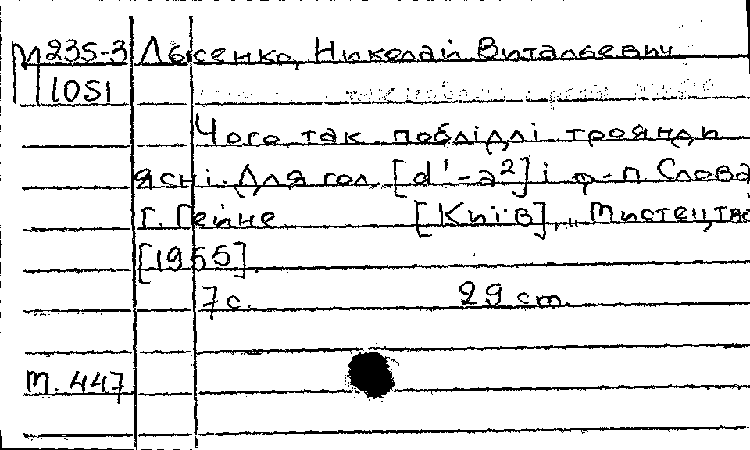 М235-3 Лысенко, Николай Витальевич
1051
Чого так поблідлі троянди
ясні. Для гол. [d¹-a²] і ф-п. Слова
Г. Гейне [Київ], Мистецтво
[1955].
7 с. 29 cm.
m. 447